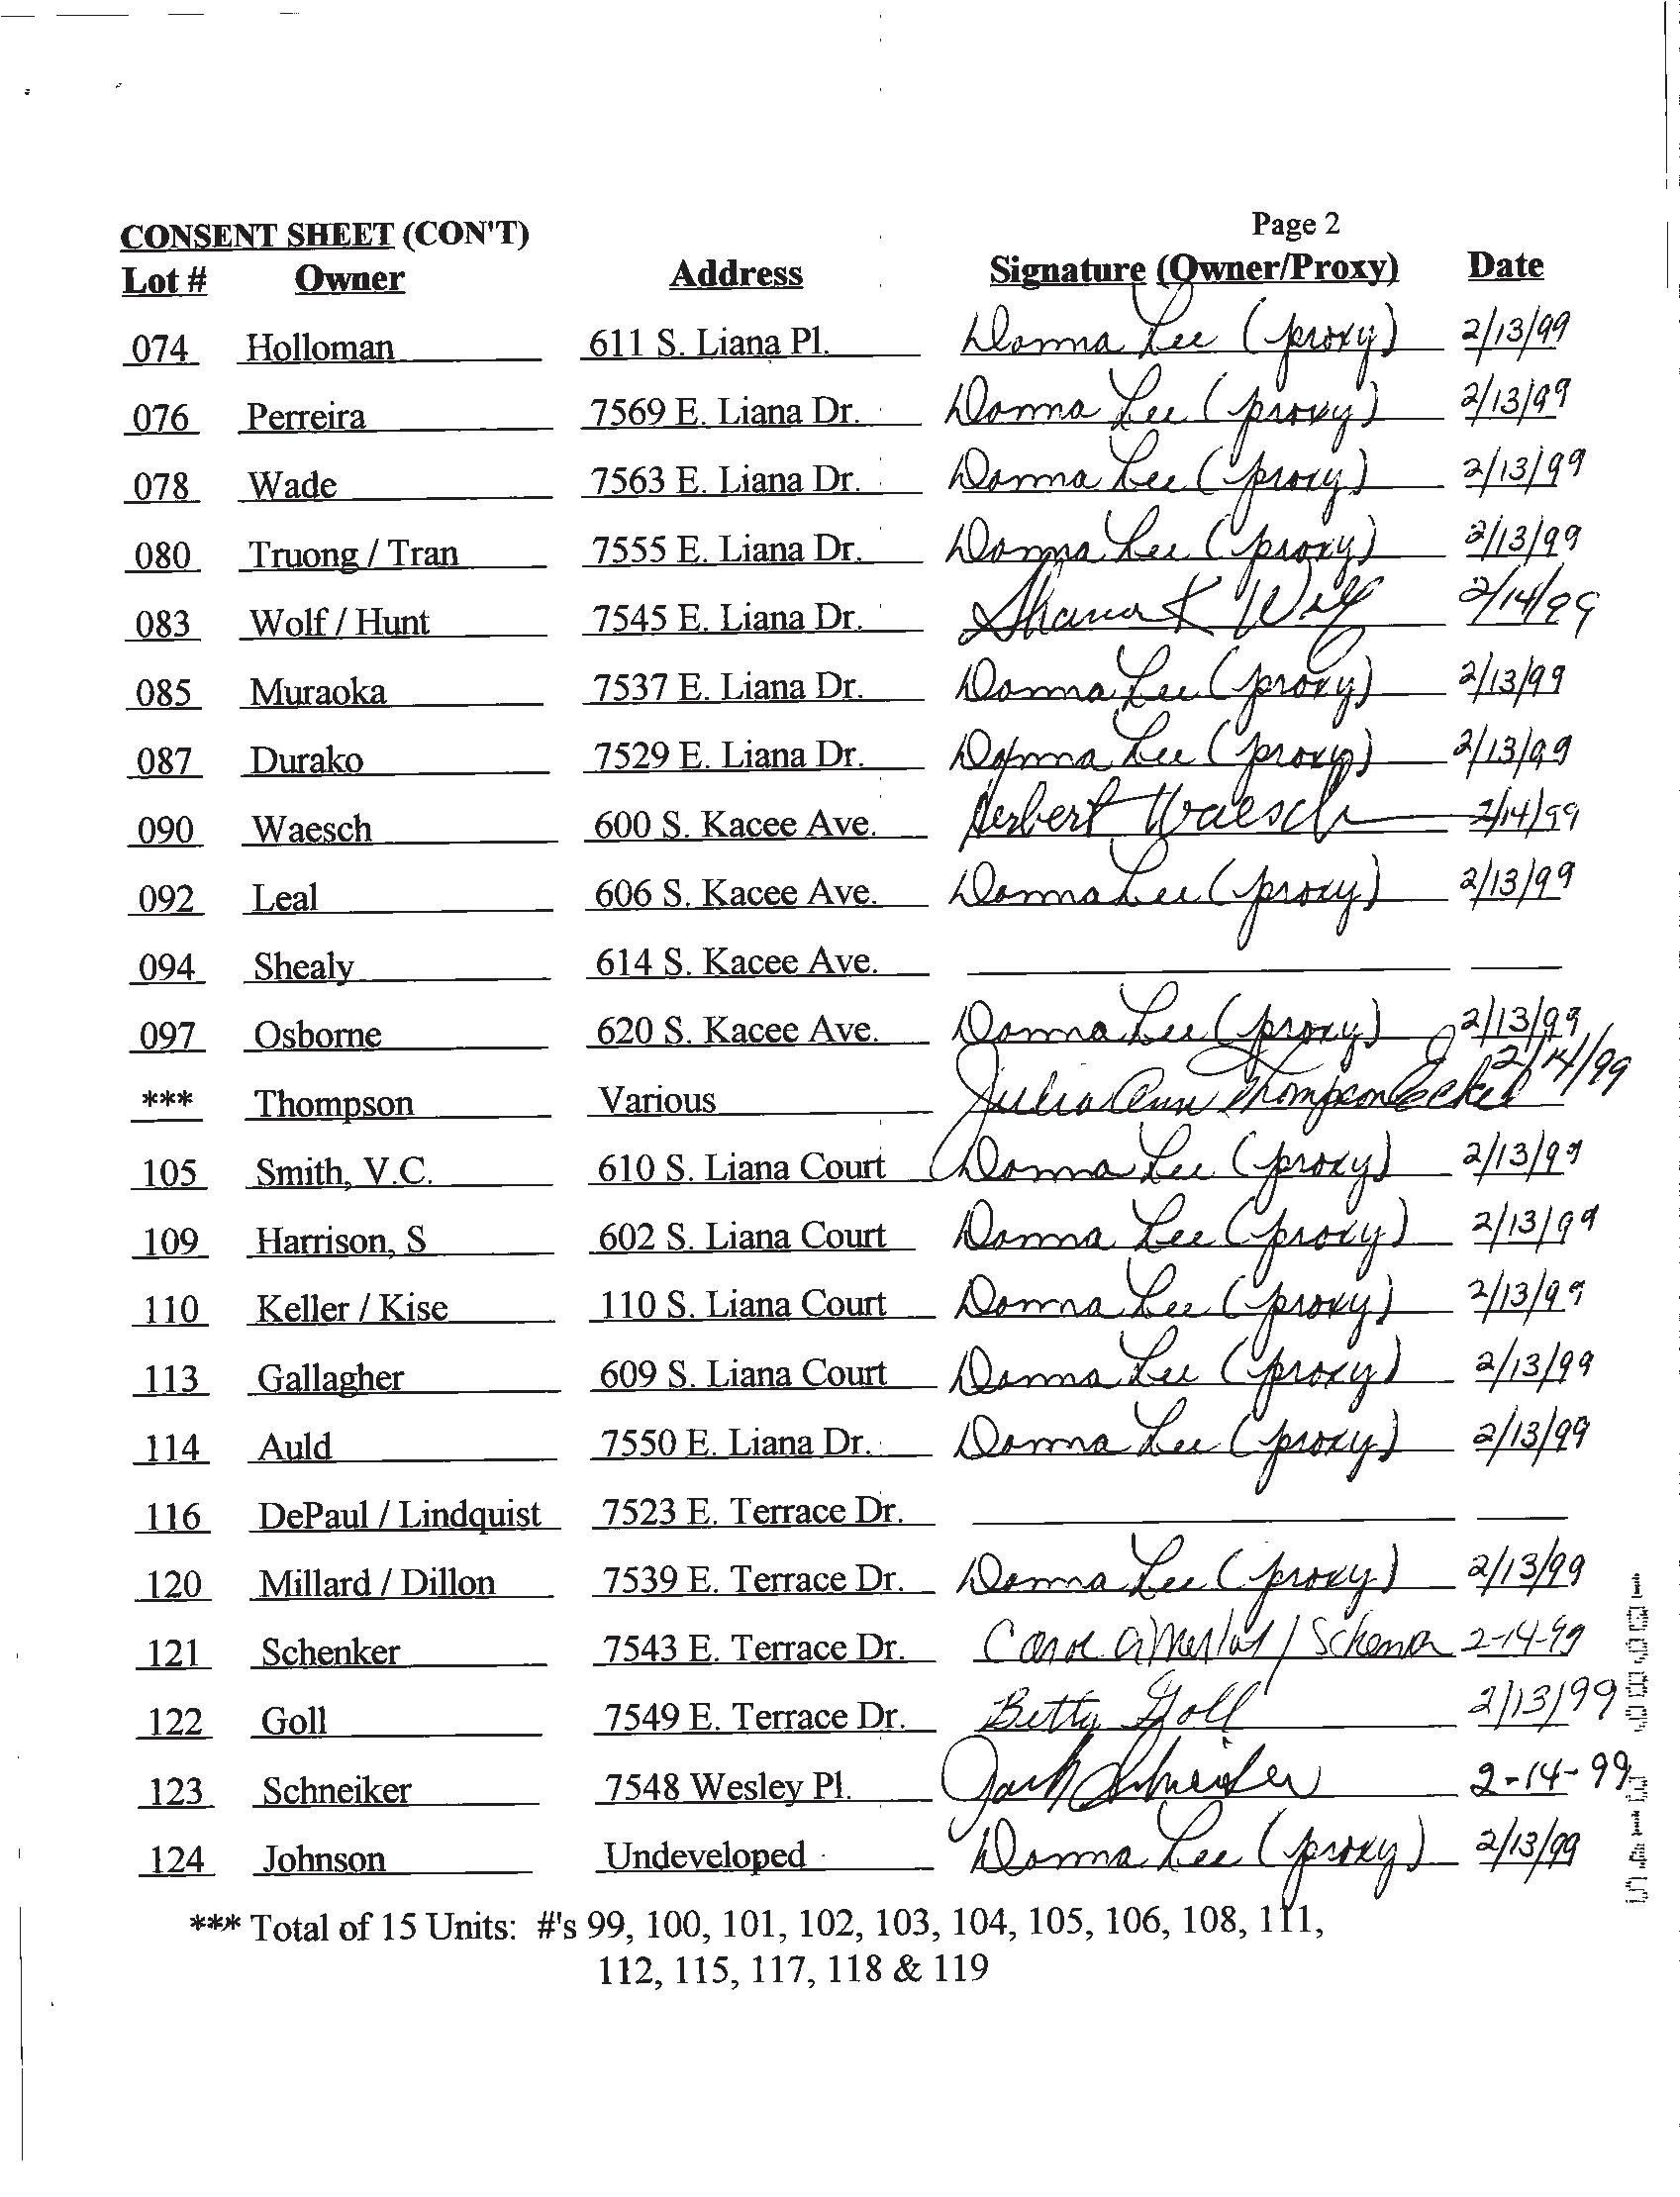 Page 2
CONSENT SHEET (CON'T)
Lot # Owner Address Signature (Owner/Proxy) Date
074 Holloman 611 S. Liana Pl. Donna Lee (proxy) 2/13/99
076 Perreira 7569 E. Liana Dr. Donna Lee (proxy) 2/13/99
078 Wade 7563 E. Liana Dr. Donna Lee (proxy) 2/13/99
080 Truong / Tran 7555 E. Liana Dr. Donna Lee (proxy) 2/13/99
083 Wolf / Hunt 7545 E. Liana Dr. K Wolf 2/14/99
085 Muraoka 7537 E. Liana Dr. Donna Lee (proxy) 2/13/99
087 Durako 7529 E. Liana Dr. Donna Lee (proxy) 2/13/99
090 Waesch 600 S. Kacee Ave. Herbert Waesch 2/14/99
092 Leal 606 S. Kacee Ave. Donna Lee (proxy) 2/13/99
094 Shealy 614 S. Kacee Ave.
097 Osborne 620 S. Kacee Ave. Donna Lee (proxy) 2/13/99
*** Thompson Various Julia Ann Thompson 2/14/99
105 Smith, V.C. 610 S. Liana Court Donna Lee (proxy) 2/13/99
109 Harrison, S 602 S. Liana Court Donna Lee (proxy) 2/13/99
110 Keller / Kise 110 S. Liana Court Donna Lee (proxy) 2/13/99
113 Gallagher 609 S. Liana Court Donna Lee (proxy) 2/13/99
114 Auld 7550 E. Liana Dr. Donna Lee (proxy) 2/13/99
116 DePaul / Lindquist 7523 E. Terrace Dr.
120 Millard / Dillon 7539 E. Terrace Dr. Donna Lee (proxy) 2/13/99
121 Schenker 7543 E. Terrace Dr. Carol A 2-14-99
122 Goll 7549 E. Terrace Dr. Betty Goll 2/13/99
123 Schneiker 7548 Wesley Pl. Jack 2-14-99
124 Johnson Undeveloped Donna Lee (proxy) 2/13/99
*** Total of 15 Units: #'s 99, 100, 101, 102, 103, 104, 105, 106, 108, 111,
112, 115, 117, 118 & 119